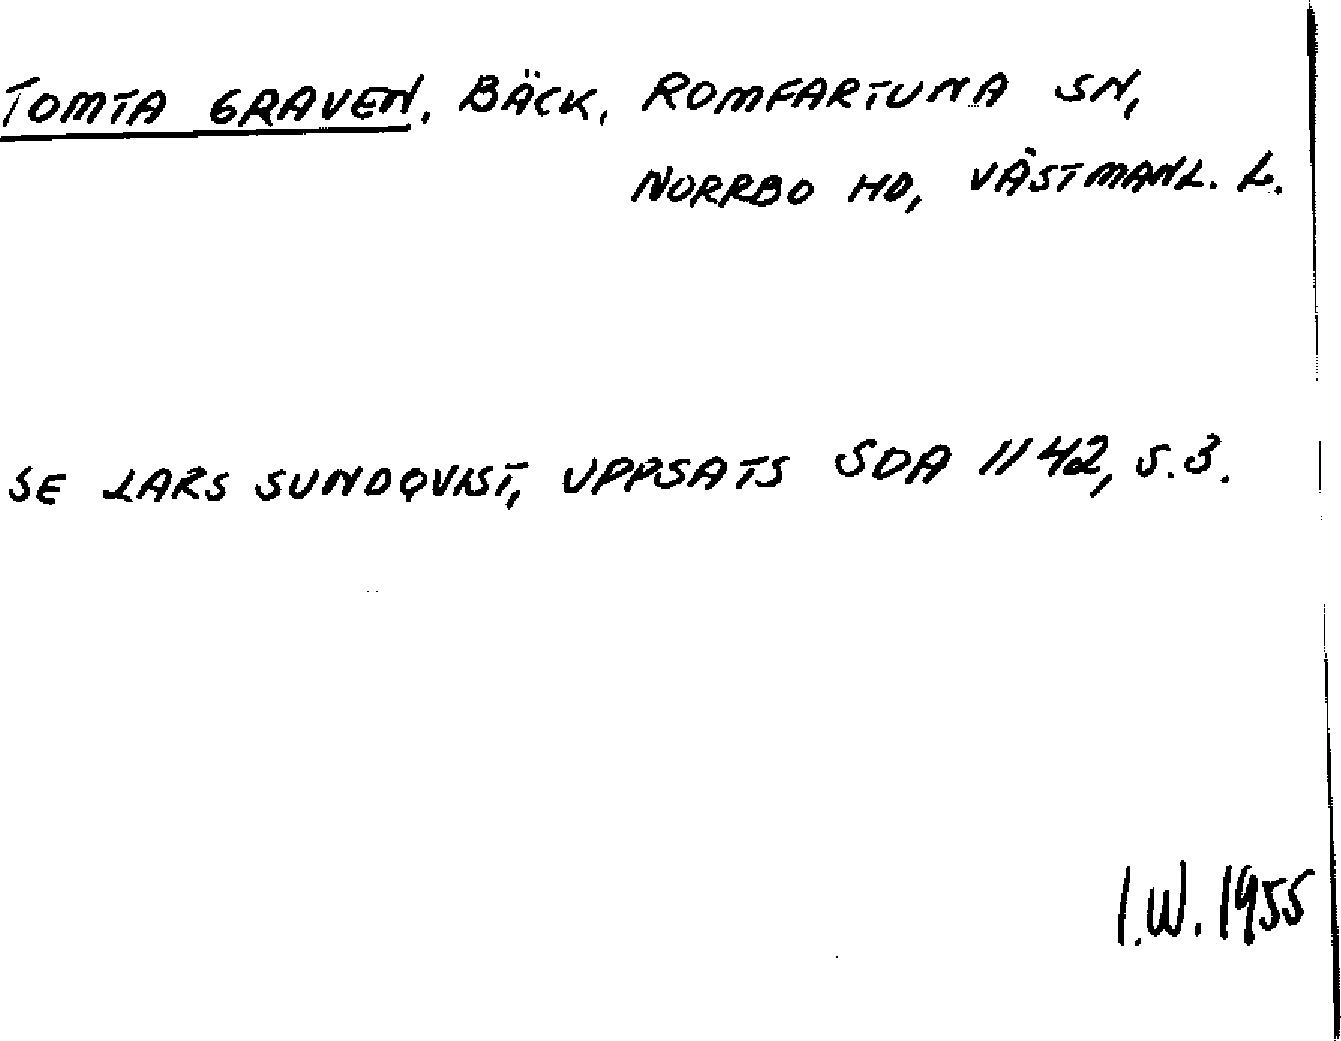 TOMTA GRAVEN, BÄCK, ROMFARTUNA SN,
NORRBO HD, VÄSTMANL. L.
SE LARS SUNDQVIST, UPPSATS SDA 1142, S.3.
I.W. 1955